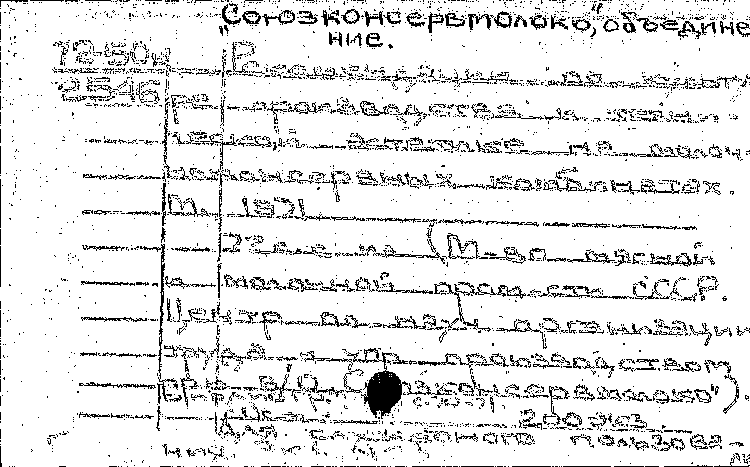 „Союзконсервмолоко", объедине
ние.
72-50н Рекомендации по культу
2546 ре производства и техни-
ческой эстетике на молоч-
ноконсервных комбинатах.
М. 1971
22 с. с ил. (М-во мясной
и молочной пром-сти СССР.
Центр по науч организации
труда и упр производством
при В/О „Союзконсервмолоко").
200 экз.
Для служебного пользова-